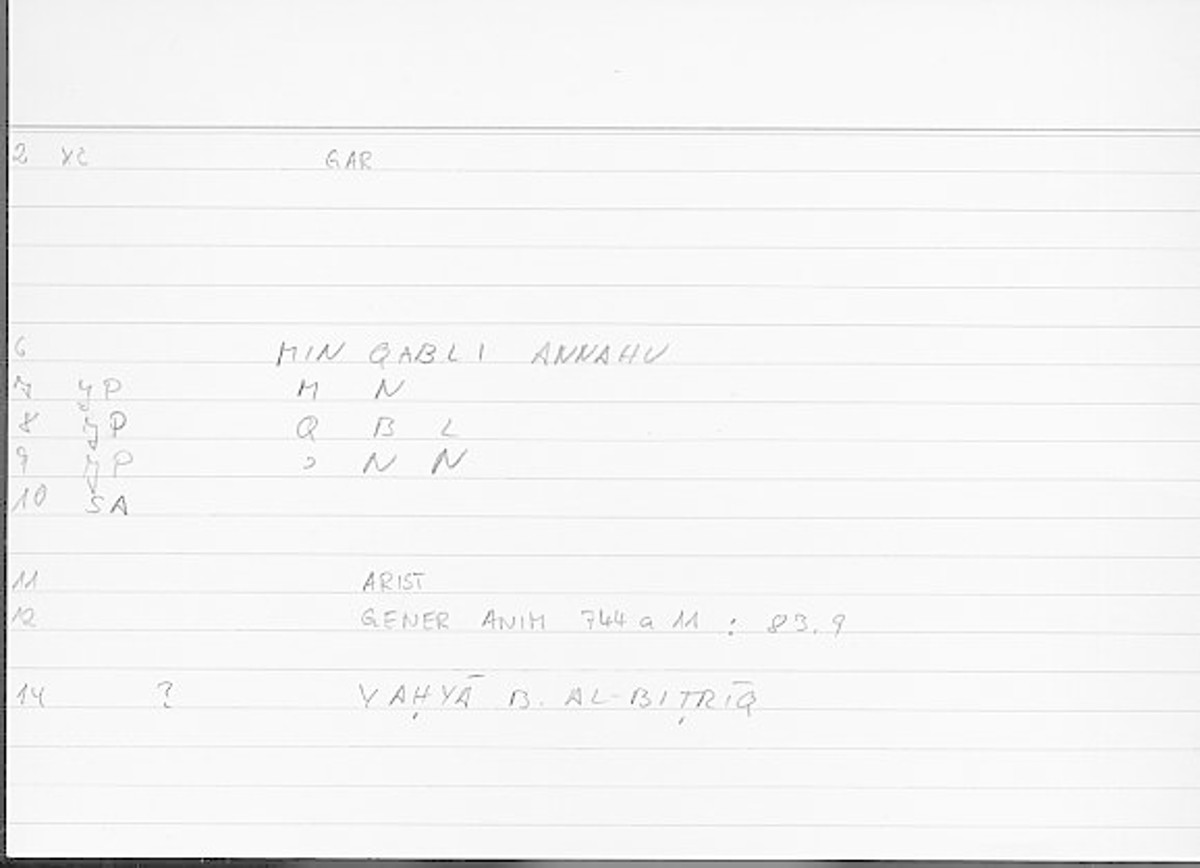 2 GAR
6 MIN QABLI ANNAHU
7 P M N
8 P Q B L
9 P ʾ N N
10 SA
11 ARIST
12 GENER ANIM 744 a 11 : 83.9
14 ? YAḤYĀ B. AL-BIṬRĪQ